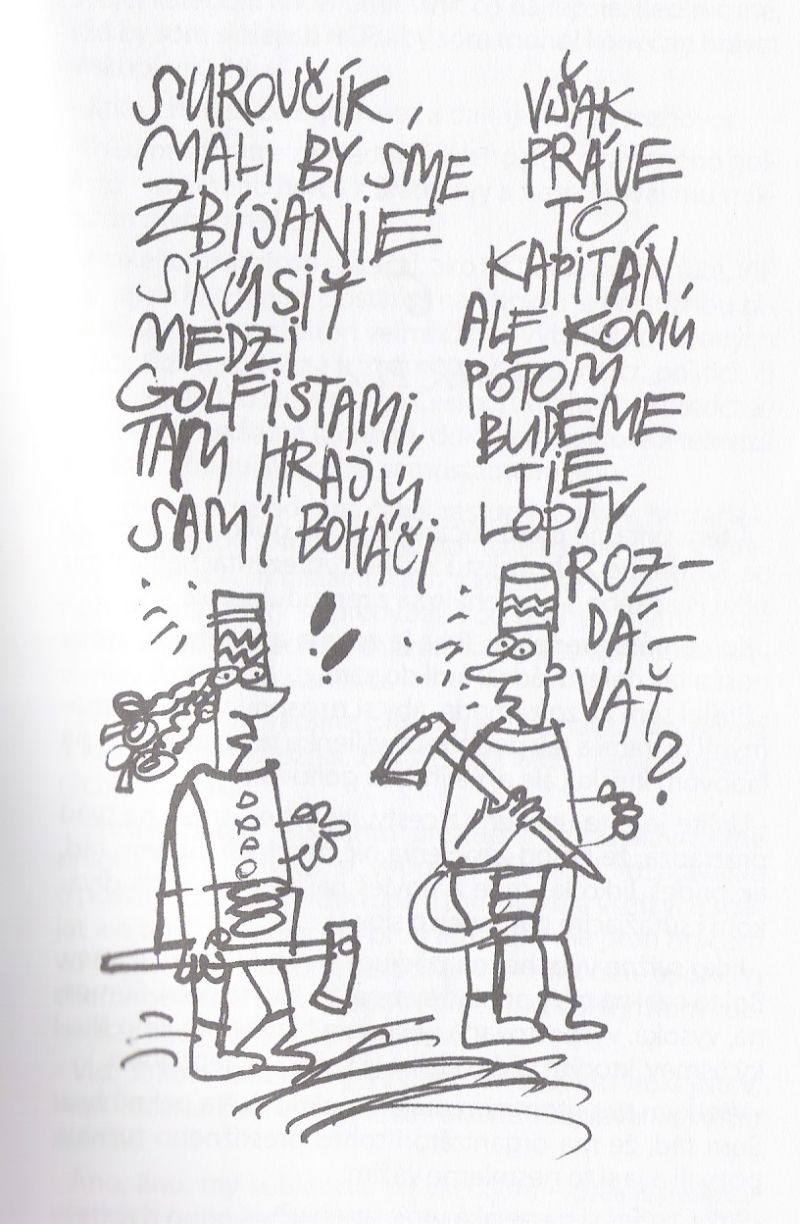 SUROVČÍK,
MALI BY SME
ZBÍJANIE
SKÚSIŤ
MEDZI
GOLFISTAMI,
TAM HRAJÚ
SAMI BOHÁČI
VŠAK
PRÁVE
TO
KAPITÁN,
ALE KOMU
POTOM
BUDEME
TIE
LOPTY
ROZ-
DÁ-
VAŤ
?